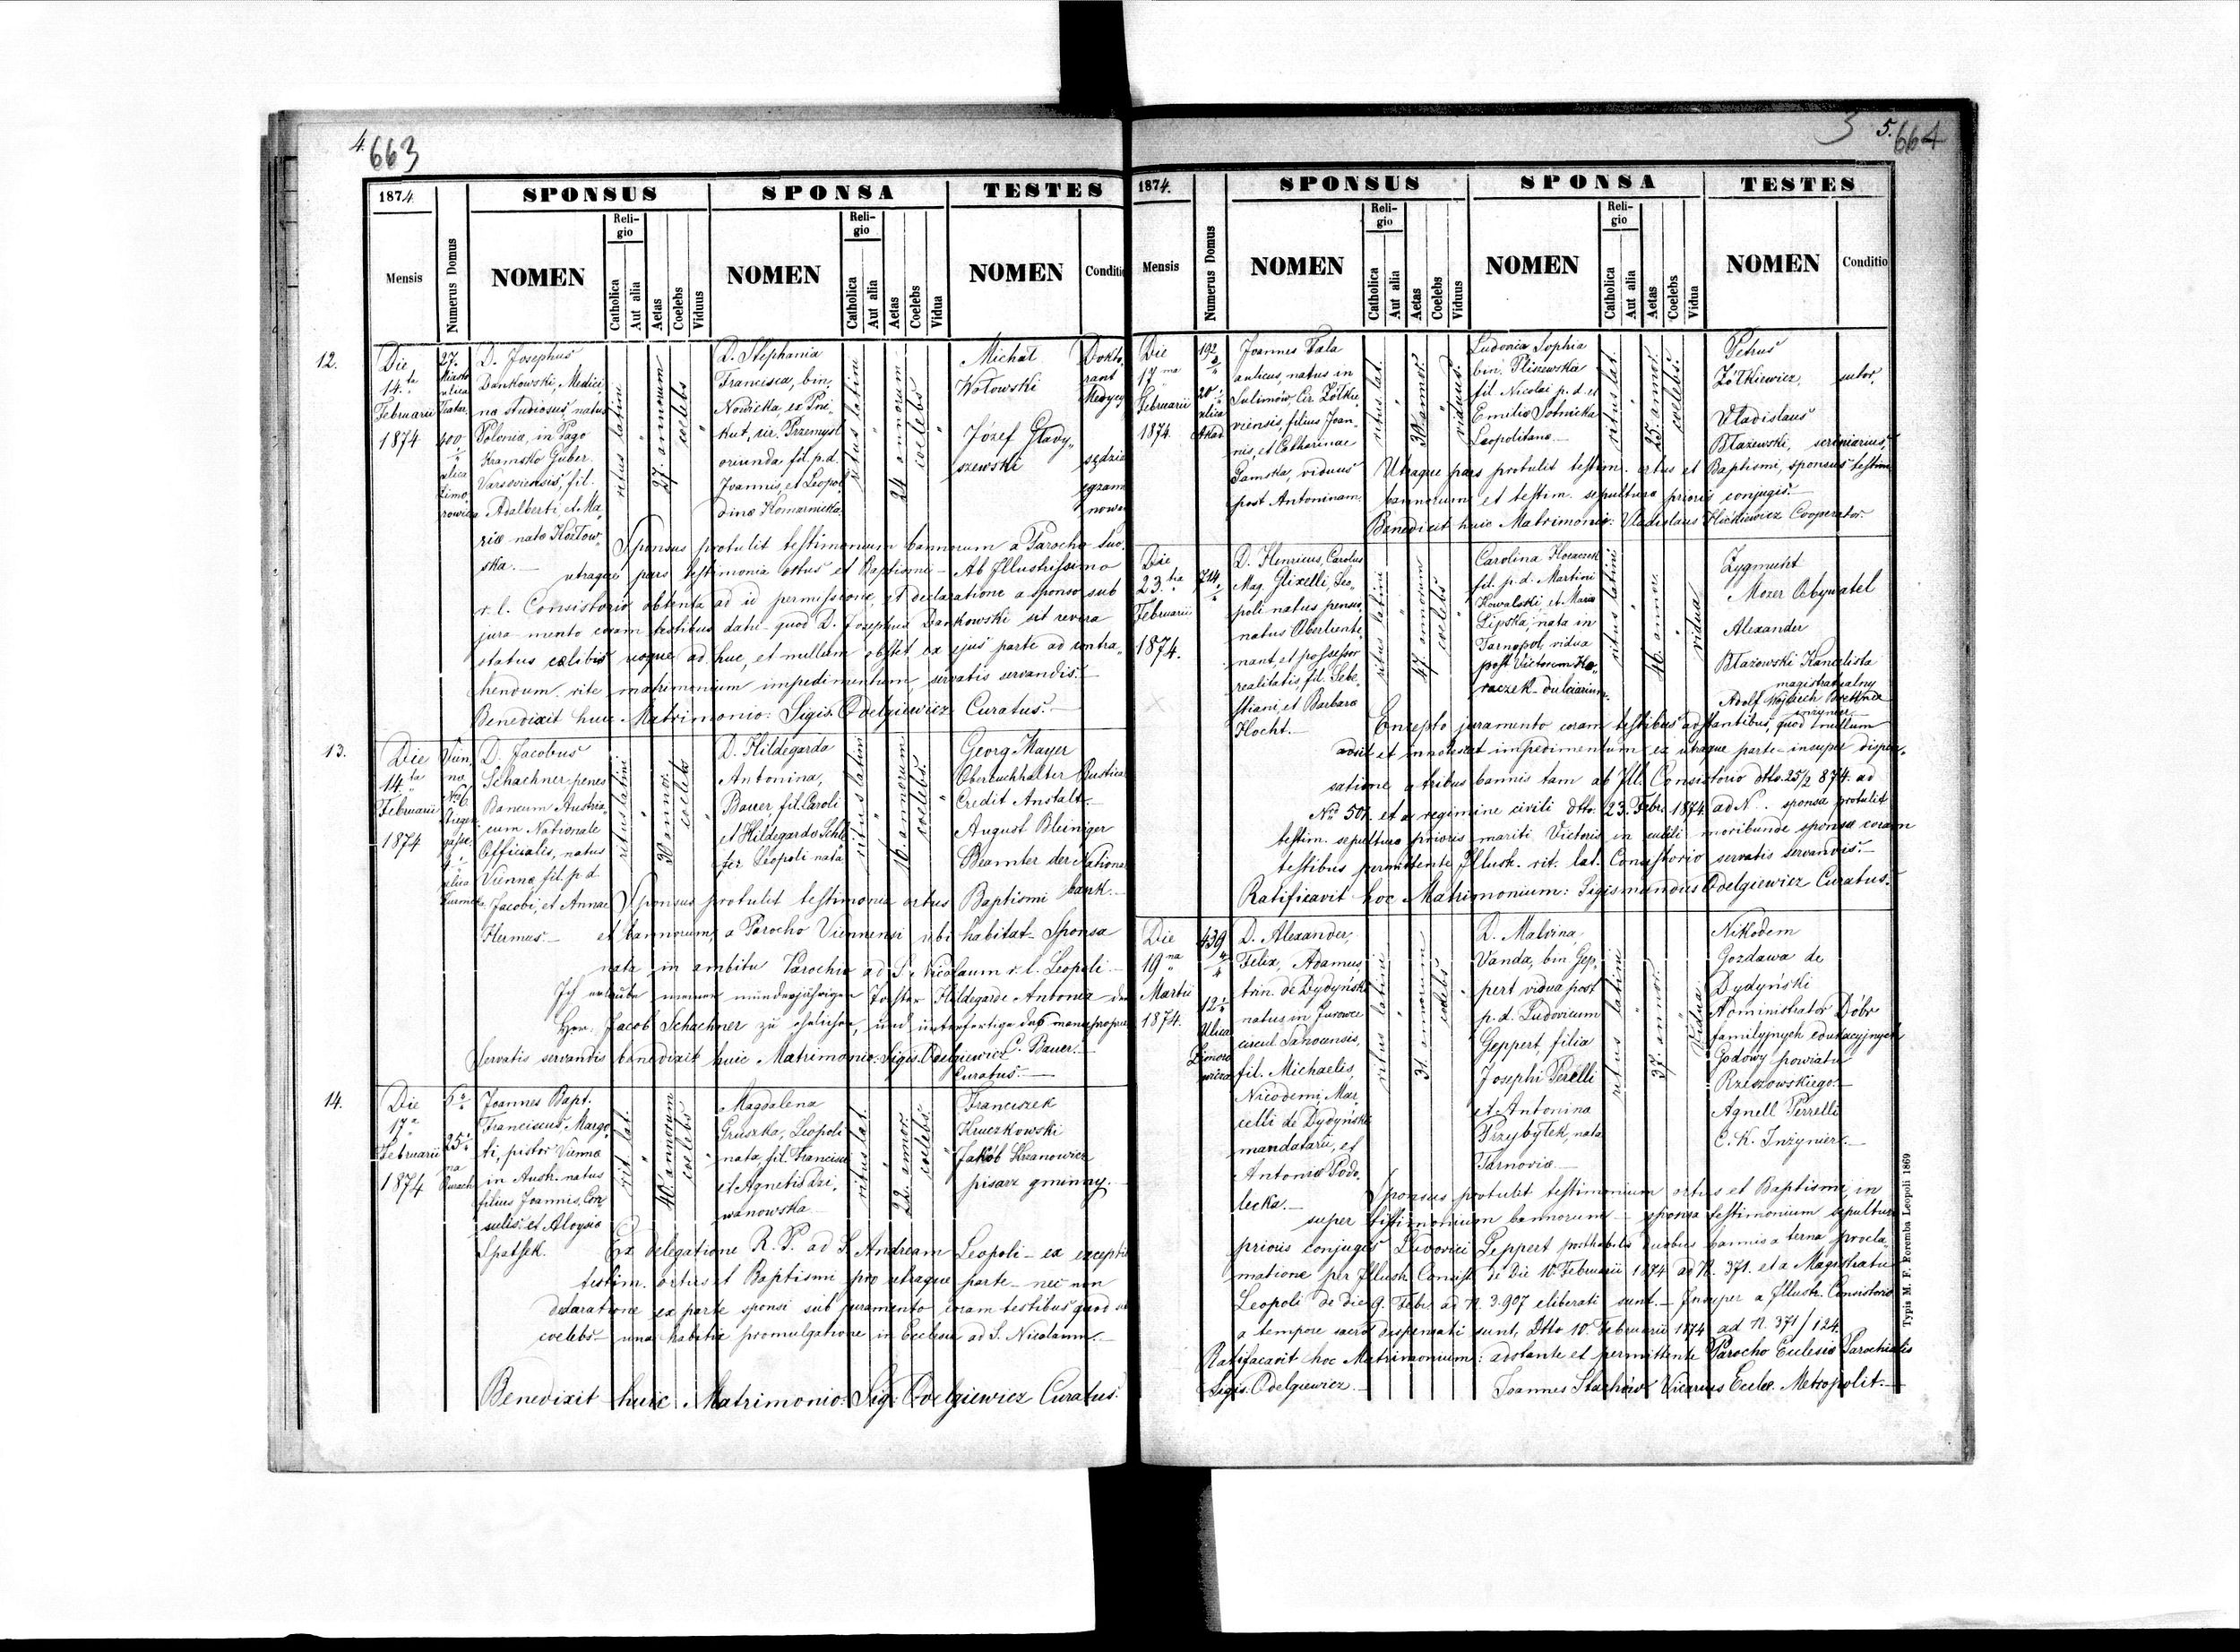 4. 663
1874.
Mensis
Numerus Domus
SPONSUS
NOMEN
Religio
Catholica
Aut alia
Aetas
Coelebs
Viduus
SPONSA
NOMEN
Religio
Catholica
Aut alia
Aetas
Coelebs
Vidua
TESTES
NOMEN
Conditio
12.
Die
14.ta
Februarii
1874
27.
Miasto
ulica
400
ulica
D. Josephus
Dankowski, Medici,
næ studiosus, natus
Polonia, in Pago
Kramsko Guber.
Varsoviensis, fil.
Adalberti, et Ma,
riæ natæ Kozłow,
ska.
ritus latini
27. annorum
coelebs
D. Stephania
Francisca, bin.
Nowicka, ex Pni,
kut, cir. Przemysl
oriunda, fil. p.d.
Joannis, et Leopol
dinæ Komarnicka
ritus latini
24 annorum
coelebs
Michał
Wołowski
Józef Głady,
szewski
Dokto,
rant
Medycy
sędzia
egzami
nowan
Sponsus protulit testimonium bannorum a Parocho suo.
utraque pars testimonia ortus et Baptismi - Ab Illustrissimo
r.l. Consistorio obtenta ad id permissione, et declaratione a sponso sub
jura mento coram testibus datu - quod D. Josephus Dankowski sit revera
status cælibis usque ad huc, et nullum obstet ex ejus parte ad contra,
hendum rite matrimonium impedimentum, servatis servandis.
Benedixit huic Matrimonio: Sigis. Odelgiewicz Curatus.
13.
Die
14.ta
Februarii
1874
Vien,
na
No 6
gasse
ulica
D. Jacobus
Schachner penes
Bancum Austria,
cum Nationale
Officialis, natus
Viennæ, fil. p d
Jacobi, et Annæ
Hermus.
ritus latini
30 annor.
coelebs
D. Hildegarda
Antonina,
Bauer fil. Caroli
et Hildegardæ Schle
fer Leopoli nata
ritus latini
16. annorum
coelebs.
Georg Mayer
Oberbuchhalter
Credit Anstalt.
August Bleiniger
Beamter der National
bank.
Sponsus protulit testimonia ortus Baptismi
et bannorum, a Parocho Viennensi ubi habitat - Sponsa
nata in ambitu Parochiæ ad S. Nicolaum r.l. Leopoli
Ich erlaube meiner minderjährigen Tochter Hildegarde Antonia den
Herr. Jacob Schachner zu ehelichen, und unterfertige das manu propria
C. Bauer.
Servatis servandis benedixit huic Matrimonio: Sigis. Odelgiewicz
Curatus.
14.
Die
17a
Februarii
1874
6 2/4
25 1/4
na
Joannes Bapt.
Franciscus Margo,
ti, pistor Viennæ
in Austr. natus
filius Joannis, Con
sulis et Aloysiæ
Spatsek.
rit lat.
40. annorum
coelebs
Magdalena
Gruszka, Leopoli
nata fil. Francisci
et Agnetis Dzi,
wanowska
ritus lat.
22. annor.
coelebs.
Franciszek
Kruczkowski
Jakób Krzanowicz
pisarz gminny.
Ex delegatione R. P. ad S. Andream Leopoli - ex exceptis
testim. ortus et Baptismi pro utraque parte - nec non
declaratione ex parte sponsi sub juramento coram testibus quod sit
coelebs - una habita promulgatione in Ecclesia ad S. Nicolaum.
Benedixit huic Matrimonio: Sig. Odelgiewicz Curatus.
3 5. 664
1874.
Mensis
Numerus Domus
SPONSUS
NOMEN
Religio
Catholica
Aut alia
Aetas
Coelebs
Viduus
SPONSA
NOMEN
Religio
Catholica
Aut alia
Aetas
Coelebs
Vidua
TESTES
NOMEN
Conditio
Die
17 ma
Februarii
1874.
192
20
ulica
Akad
Joannes Fala
aulicus, natus in
Sulimów, Cir. Żółkie
viensis, filius Joan,
nis, et Catharinæ
Gamska, viduus
post Antoninam.
ritus lat.
30 annor.
viduus.
Ludovica Sophia
bin. Pliszewska
fil. Nicolai p.d. et
Emiliæ Sotnicka
Leopolitana
ritus lat.
25. annor.
coelebs.
Petrus
Żółkiewicz,
Vladislaus
Błażewski,
sutor,
scriniarius,
Utraque pars protulit testim. ortus et Baptismi, sponsus testim
bannorum et testim. sepulturæ prioris conjugis.
Benedixit huic Matrimonio: Vladislaus Cooperator
Die
23.tia
Februarii
1874.
714 1/4
D. Henricus, Carolus
Mag. Glixelli, Leo,
poli natus pensio,
natus Oberlieute,
nant, et possessor
realitatis, fil. Seba,
stiani, et Barbaræ
Hocht.
ritus latini
47 annorum
coelebs
Carolina Horaczek
fil. p.d. Martini
Kowalski, et Mariæ
Lipska, nata in
Tarnopol, vidua
post Victorem Ho,
raczek dulciarium.
ritus latini
46. annor.
vidua
Zygmunt
Mozer Obywatel
Alexander
Błażowski Kancelista
magistratualny
Adolf Wojciech
inżynier
Excepto juramento coram testibus adstantibus, quod nullum
adsit et innotescat impedimentum ex utraque parte - insuper dispen,
satione a tribus bannis tam ab Ill. Consistorio dtto. 25/2 874. ad
No 501. et a regimine civili dtto. 23. Febr. 1874. ad N . sponsa protulit
testim. sepulturæ prioris mariti Victoris, in cubili moribundæ sponsæ coram
testibus permittente Illustr. rit. lat. Consistorio servatis servandis.
Ratificavit hoc Matrimonium: Sigismundus Odelgiewicz Curatus.
Die
19 na
Martii
1874.
439 4/4
12 1/4
Ulica
Zimoro
wicza
D. Alexander,
Felix, Adamus,
trin. de Dydyński
natus in Jurowce
circul. Sanocensis,
fil. Michaelis,
Nicodemi, Mar,
celli de Dydyński
mandatarii, et
Antoniæ Podo,
lecka.
ritus latini
31. annorum
coelebs
D. Malvina,
Vanda, bin Gep,
pert vidua post
p.d. Ludovicum
Geppert, filia
Josephi Perelli
et Antonina
Przybyłek, nata
Tarnoviæ
ritus latini
37. annor.
vidua
Nikodem
Gozdawa de
Dydyński
Administrator Dóbr
familyjnych edukacyjnych
Godowy powiatu
Rzeszowskiego.
Agnell Perrelli
C. K. Inżynier.
Sponsus protulit testimonium ortus et Baptismi, in
super testimonium bannorum - sponsa testimonium sepulturæ
prioris conjugis Ludovici Geppert posthabitis duobus bannis a terna procla,
matione per Illustr. Consist. de Die 10 Februarii 1874 ad N. 371. et a Magistratu
Leopoli de die 9. Febr. ad N. 3.907 eliberati sunt. - Insuper a Illustr. Consistorio
a tempore sacro dispensati sunt, Dtto 10. Februarii 1874 ad N. 371/124.
Ratificavit hoc Matrimonium: adstante et permittente Parocho Eclesiæ Parochialis
Sigis. Odelgiewicz. Joannes Stachów Vicarius Eccles. Metropolit.
Typis M. F. Poremba Leopoli 1869